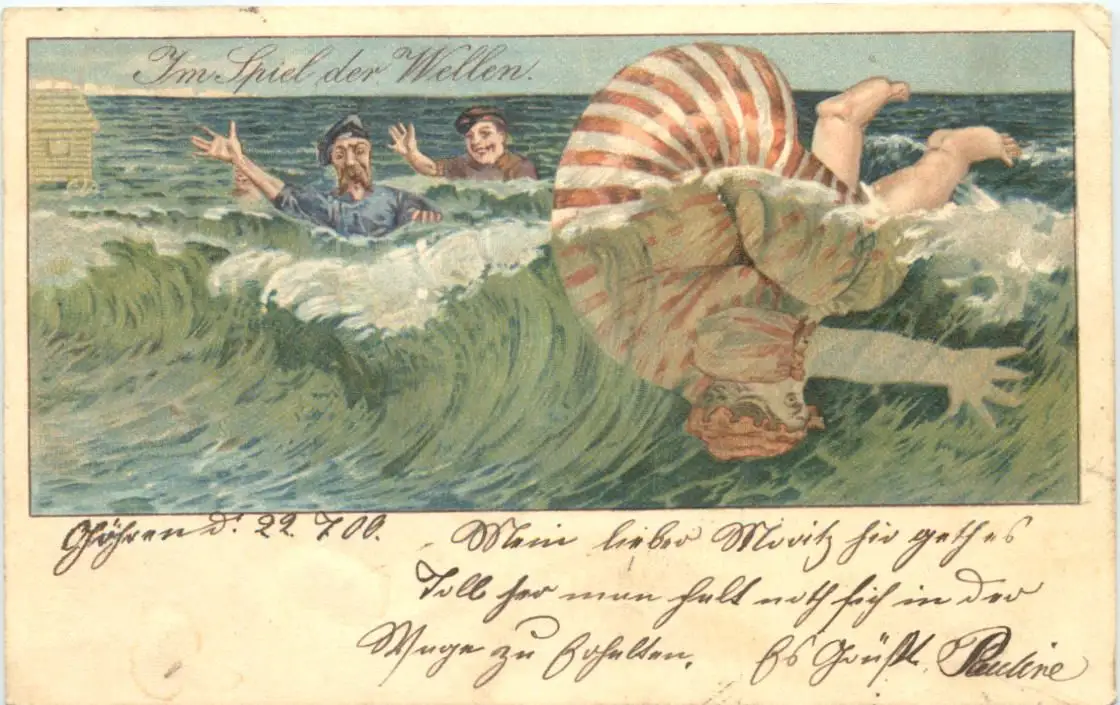 Im Spiel der Wellen.
Göhren d. 22. 7 00.
Mein lieber Moritz hir geth es
Toll her man halt noth sich in der
Wage zu Erhalten. Es Grüßt Pauline